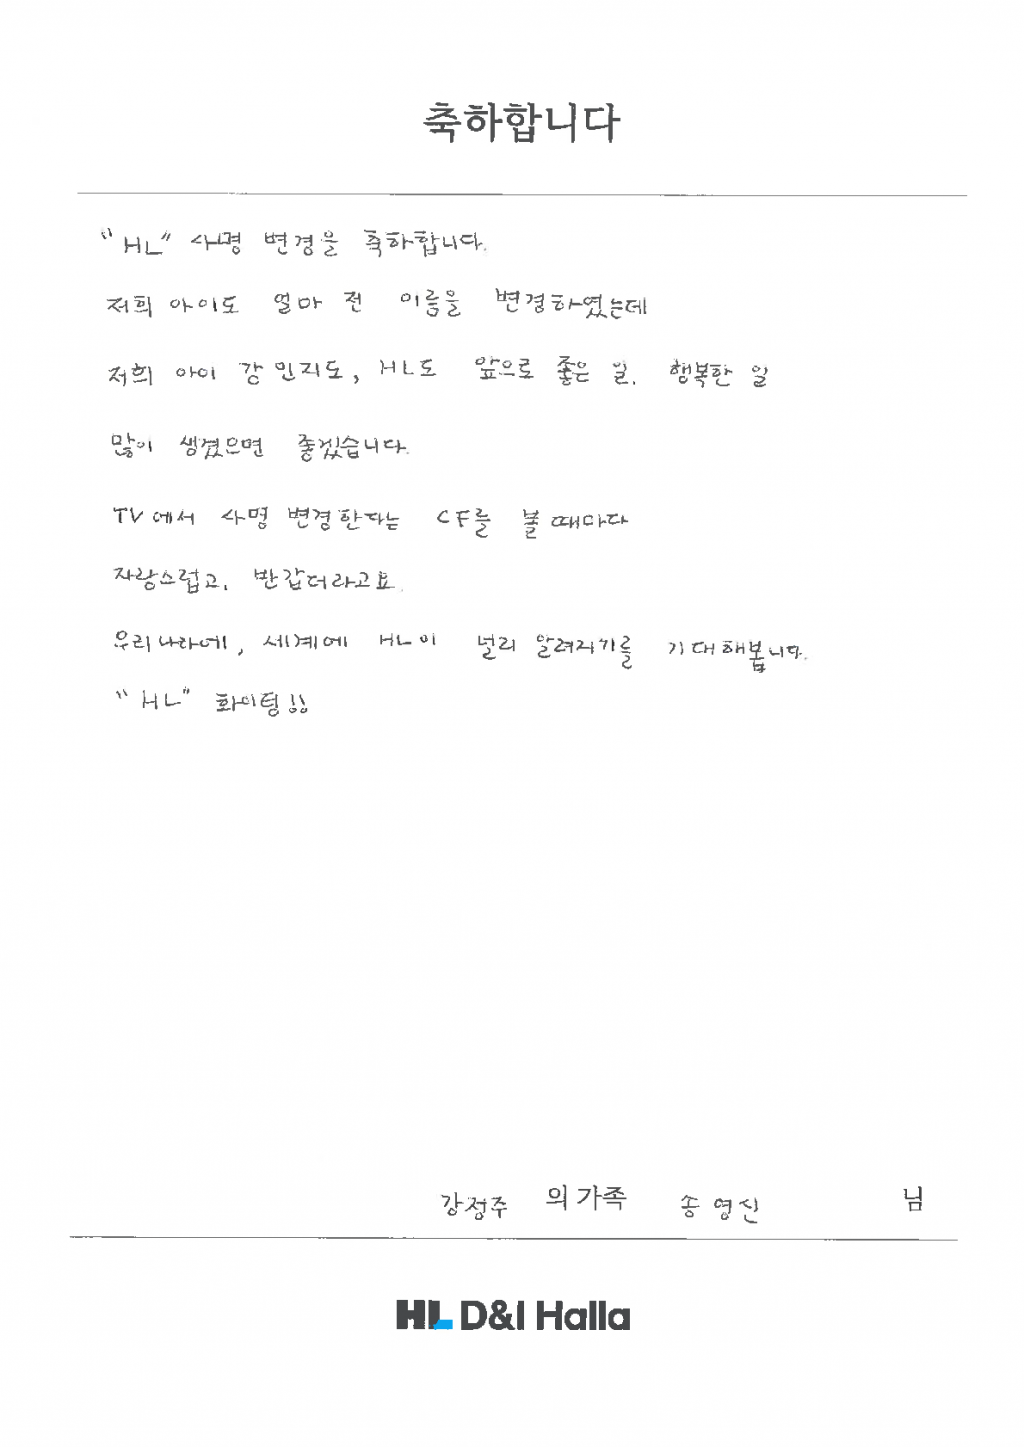 축하합니다
"HL" 사명 변경을 축하합니다.
저희 아이도 얼마 전 이름을 변경하였는데
저희 아이 강민지도, HL도 앞으로 좋은 일, 행복한 일
많이 생겼으면 좋겠습니다.
TV에서 사명 변경한다는 CF를 볼 때마다
자랑스럽고, 반갑더라고요.
우리나라에, 세계에 HL이 널리 알려지기를 기대해봅니다.
"HL" 화이팅!!
강정주 의 가족 송영신 님
HL D&I Halla